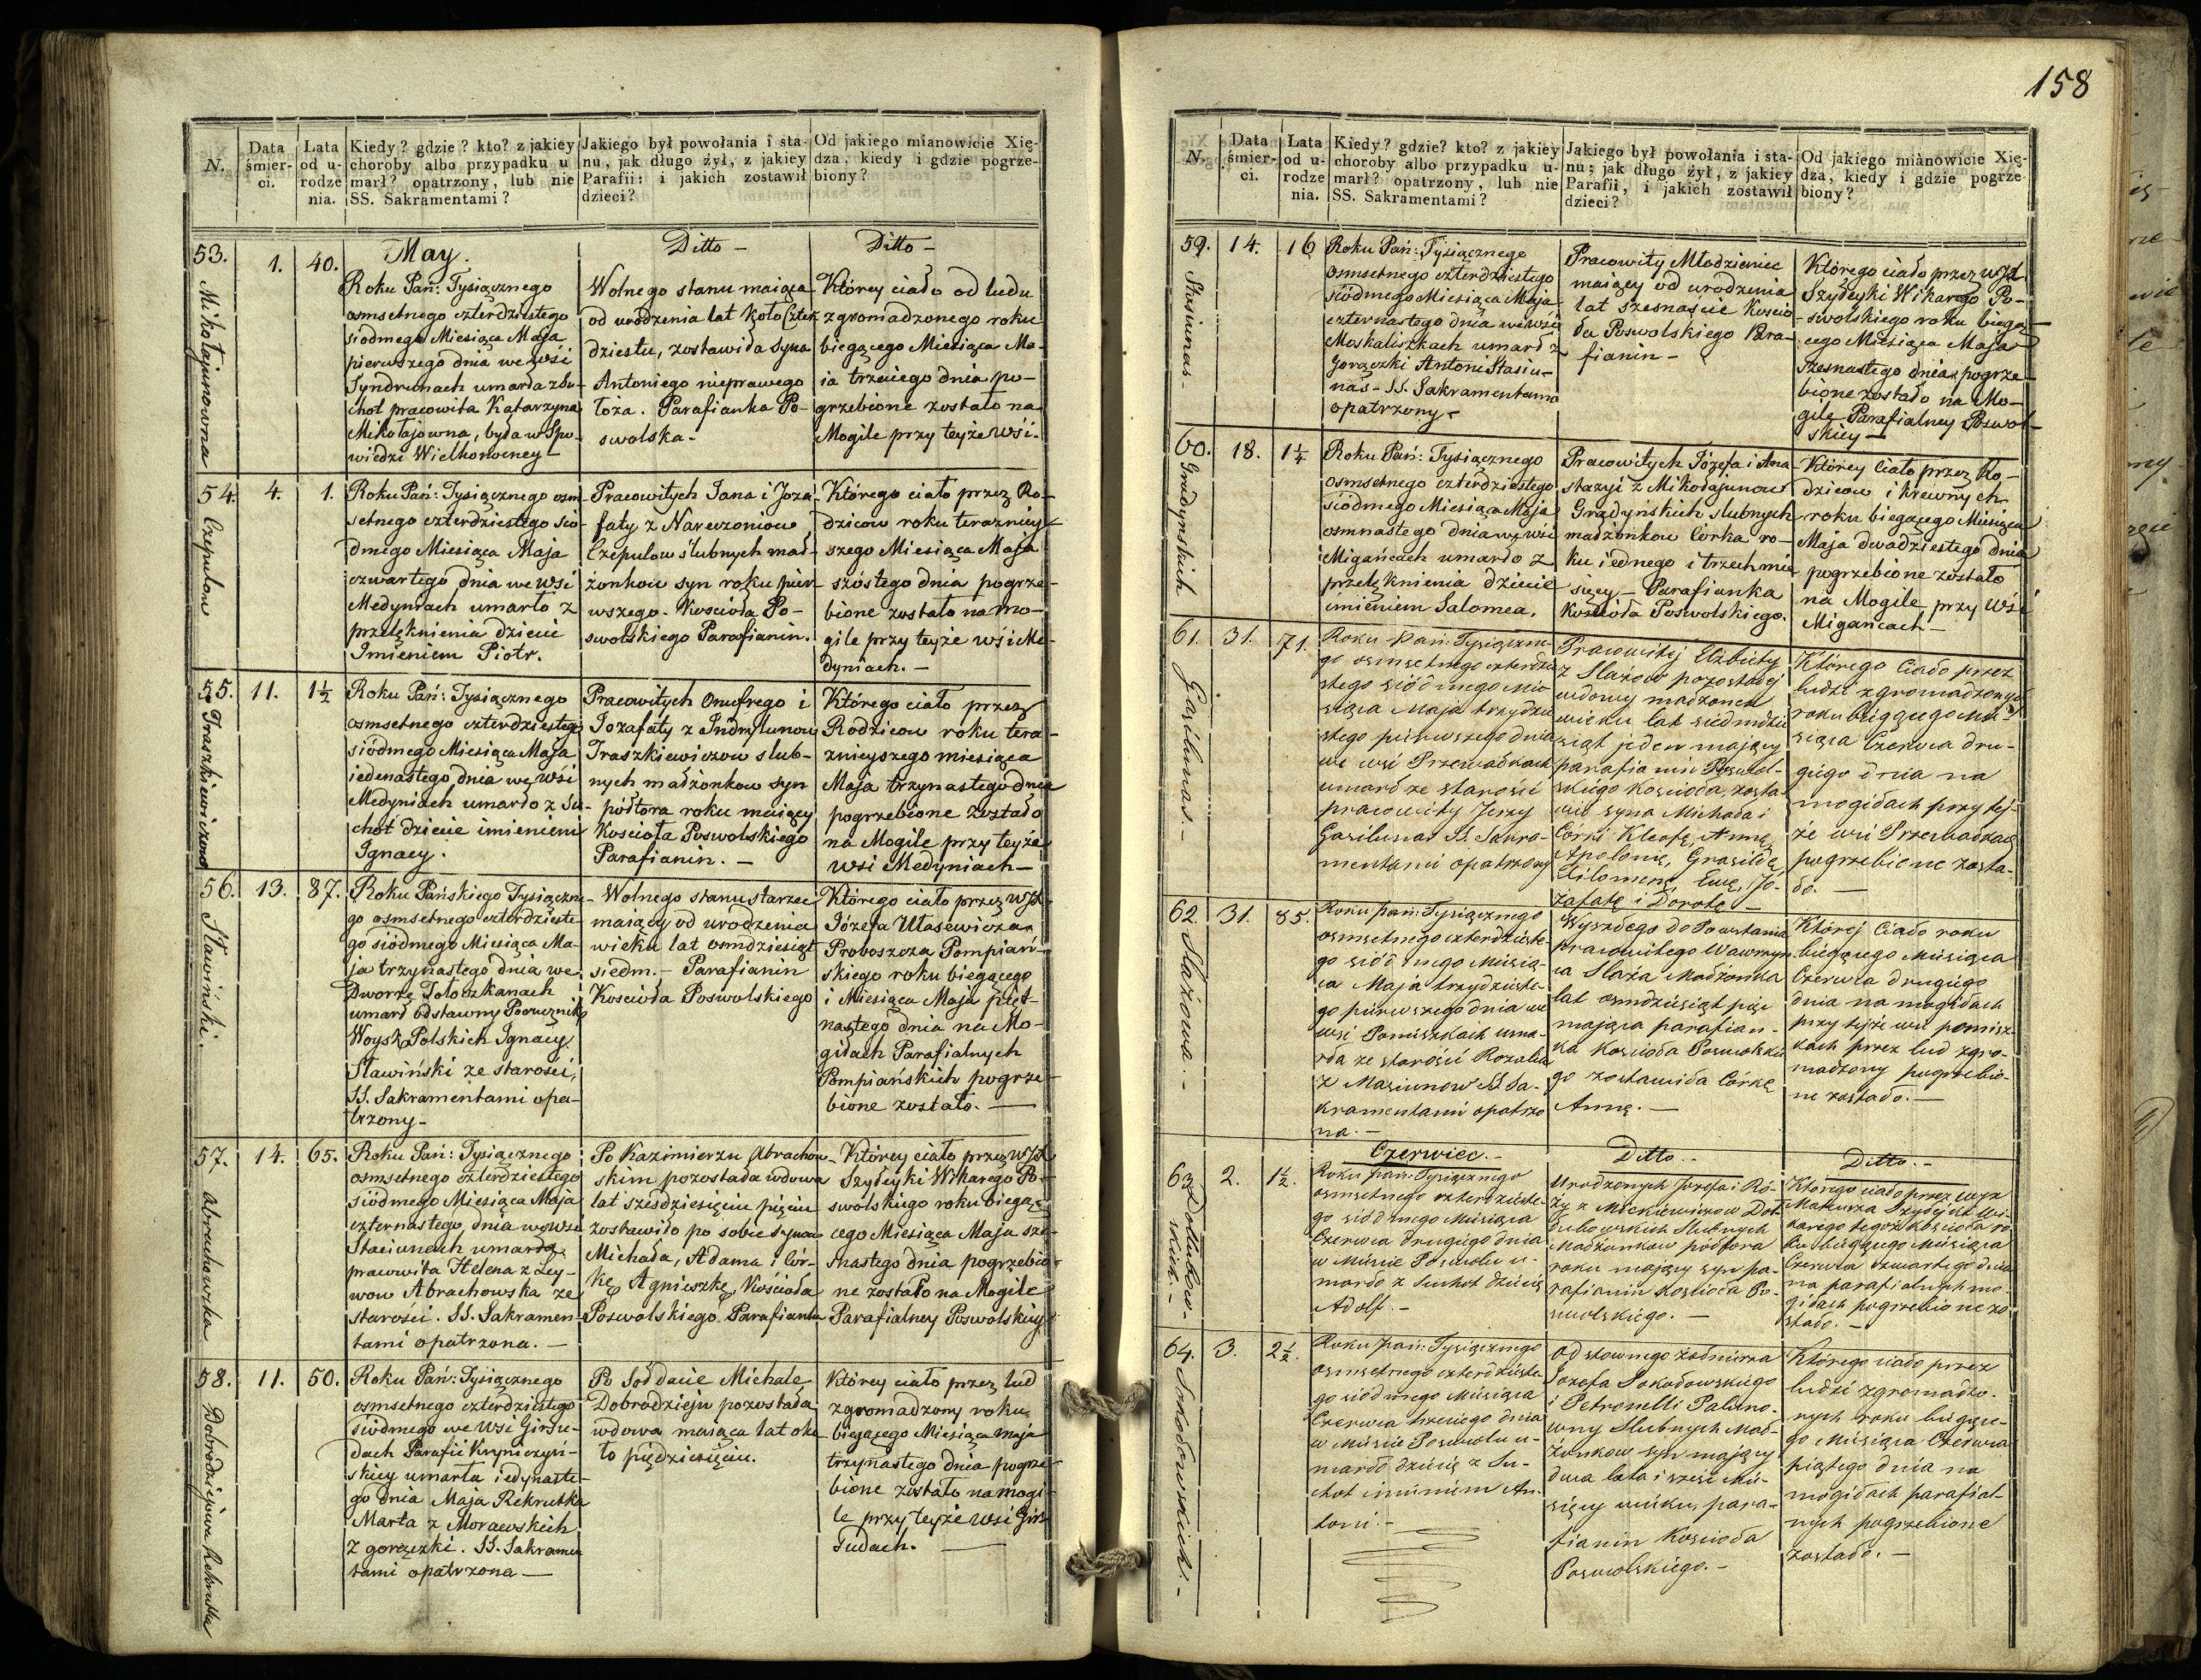 N.
Data śmier-
ci.
Lata
od u-
rodze
nia.
Kiedy? gdzie? kto? z jakiey
choroby albo przypadku u
marł? opatrzony, lub nie
SS. Sakramentami?
Jakiego był powołania i sta-
nu, jak długo żył, z jakiey
Parafii: i jakich zostawił
dzieci?
Od jakiego mianowicie Xię-
dza, kiedy i gdzie pogrze-
biony?
53.
Mikołajunowna
1.
40.
May.
Roku Pań: Tysiącznego
osmsetnego czterdziestego
siodmego Miesiąca Maja
pierwszego dnia we wsi
Tyndrunach umarła z Su-
chot pracowita Katarzyna
Mikołajowna, była w Spo-
wiedzi Wielkonocney
Ditto -
Wolnego stanu maiąca
od urodzenia lat koło czter
dziestu, zostawiła Syna
Antoniego nieprawego
łoża. Parafianka Po-
swolska -
Ditto -
Którey ciało od ludu
zgromadzonego roku
biegącego Miesiąca Ma-
ia trzeciego dnia po-
grzebione zostało na
Mogile przy teyże wsi.
54.
Czepulow
4.
1.
Roku Pań: Tysiącznego osm-
setnego czterdziestego sio-
dmego Miesiąca Maja
czwartego dnia we wsi
Medyniach umarło z
przelęknienia dziecie
Imieniem Piotr.
Pracowitych Jana i Joza-
faty z Narwzoniow
Czepulow ślubnych mał-
żonkow syn roku pier-
wszego. Kościoła Po-
swolskiego Parafianin.
Którego ciało przez Ro-
dzicow roku teraźniey-
szego Miesiąca Maja
szóstego dnia pogrze-
bione zostało na mo-
gile przy teyże wsi Me-
dyniach. -
55.
Traszkiewiczow
11.
1½
Roku Pań: Tysiącznego
osmsetnego czterdziestego
siódmego Miesiąca Maja
iedenastego dnia we wsi
Medyniach umarło z Su-
chot dziecie imieniem
Ignacy.
Pracowitych Onufrego i
Jozafaty z Indrylunow
Traszkiewiczow slub-
nych małżonkow syn
półtora roku maiący
Kościoła Poswolskiego
Parafianin. -
Którego ciało przez
Rodzicow roku tera-
znieyszego miesiąca
Maja trzynastego dnia
pogrzebione zostało
na Mogile przy teyże
wsi Medyniach -
56.
Sławiński.
13.
87.
Roku Pańskiego Tysiączne-
go osmsetnego czterdzieste-
go siódmego Miesiąca Ma-
ja trzynastego dnia we
Dworze Tołoczkanach
umarł odstawny Porucznik
Woysk Polskich Ignacy
Sławiński ze starości,
SS. Sakramentami opa-
trzony -
Wolnego stanu starzec
maiący od urodzenia
wieku lat osmdziesiąt
siedm. - Parafianin
Kościoła Poswolskiego
Którego ciało przez WJX
Józefa Własewicza
Proboszcza Pompiań-
skiego roku biegącego
i Miesiąca Maja pięt-
nastego dnia na Mo-
giłach Parafialnych
Pompiańskich pogrze-
bione zostało. -
57.
Abrachowska
14.
65.
Roku Pań: Tysiącznego
osmsetnego czterdziestego
siódmego Miesiąca Maja
czternastego dnia we wsi
Staciunach umarła
pracowita Helena z Ley-
wow Abrachowska ze
starości. SS. Sakramen-
tami opatrzona. -
Po Kazimierzu Abrachow-
skim pozostała wdowa
lat sześdziesięciu pięciu
zostawiło po sobie synow
Michała, Adama i Cór-
kę Agnieszkę, Kościoła
Poswolskiego Parafianka
Którey ciało przez WJX
Szydeyki Wikarego Po-
swolskiego roku biegą-
cego Miesiąca Maja sze-
snastego dnia pogrzebio-
ne zostało na Mogile
Parafialney Poswolskiey
58.
Dobrodziejowa Rekrutka
11.
50.
Roku Pań: Tysiącznego
osmsetnego czterdziestego
siodmego we wsi Girsu-
dach Parafii Krynczyń-
skiey umarła iedynaste-
go dnia Maja Rekrutka
Marta z Morawskich
z gorączki. SS. Sakramen
tami opatrzona -
Po Sołdacie Michale
Dobrodzieju pozostała
wdowa maiąca lat oko-
ło pięćdziesięciu.
Którey ciało przez lud
zgromadzony roku
biegącego Miesiąca maja
trzynastego dnia pogrze-
bione zostało na mogi-
le przy teyże wsi Gir-
sudach. -
158
N.
Data
śmier-
ci.
Lata
od u-
rodze
nia.
Kiedy? gdzie? kto? z jakiey
choroby albo przypadku u-
marł? opatrzony, lub nie
SS. Sakramentami?
Jakiego był powołania i sta-
nu; jak długo żył, z jakiey
Parafii, i jakich zostawił
dzieci?
Od jakiego miànowicie Xię-
dza, kiedy i gdzie pogrze-
biony?
59.
Stasiunas -
14.
16
Roku Pań: Tysiącznego
osmsetnego czterdziestego
siódmego Miesiąca Maja
czternastego dnia we wsi
Moskaliszkach umarł z
gorączki Antoni Stasiu-
nas - SS. Sakramentami
opatrzony -
Pracowity Młodzieniec
maiący od urodzenia
lat szesnaście Koscio
ła Poswolskiego Para-
fianin -
Którego ciało przez WJX
Szydeyki Wikarego Po-
swolskiego roku biegą-
cego Miesiąca Maja
szesnastego dnia pogrze-
bione zostało na Mo-
gile Parafialney Poswol-
skiey -
60.
Grudynskich
18.
1¼
Roku Pań: Tysiącznego
osmsetnego czterdziestego
siódmego Miesiąca Maja
osmnastego dnia we wsi
Migańcach umarło z
przelęknienia dziecie
imieniem Salomea.
Pracowitych Józefa i Ana-
stazyi z Mikołajunow
Grądyńskich slubnych
małżonkow Córka ro-
ku iednego i trzech mie
sięcy - Parafianka
Kościoła Poswolskiego.
Którey Ciało przez Ro-
dzicow i krewnych
roku biegącego Miesiąca
Maja dwadziestego dnia
pogrzebione zostało
na Mogile przy Wśi
Migańcach -
61.
Gasilunas -
31.
71.
Roku Pań: Tysiączne-
go osmsetnego czterdzie
stego siódmego Mie
siąca Maja trzydzie
stego pierwszego dnia
we wsi Przewałkach
umarł ze starości
pracowity Jerzy
Gasilunas SS. Sakra-
mentami opatrzony
Pracowitej Elżbiety
z Slażow pozostałej
wdowy małżonek
wieku lat siedmdzie
siąt jeden mający
parafianin Poswol-
skiego Kościoła, zosta-
wił syna Michała i
Corki Kleofę, Annę,
Apolonię, Grasildę
Filomenę, Ewę, Jo-
zafatę i Dorotę -
Którego Ciało przez
ludzi zgromadzonych
roku biegącego Mie-
siąca Czerwca dru-
giego dnia na
mogiłach przy tej-
że wsi Przewałkach
pogrzebione zosta-
ło. -
62
Slażowa. -
31.
85.
Roku pań: Tysiącznego
osmsetnego czterdzieste-
go siódmego Miesią-
ca Maja trzydzieste-
go pierwszego dnia we
wsi Poniszkach uma-
rła ze starości Rozalia
z Masiunow SS Sa-
kramentami opatrzo
na. -
Wyszłego do Powstania
pracowitego Wawrzyń
ca Slaża Małżonka
lat osmdziesiąt pięć
mająca parafian-
ka Kościoła Poswolskie
go zostawiła Córkę
Annę. -
Której Ciało roku
biegącego Miesiąca
Czerwca drugiego
dnia na mogiłach
przy tejże wsi Ponisz
kach przez lud zgro-
madzony pogrzebio-
ne zostało. -
63.
Dołubow-
skich. -
2.
1½.
Czerwiec. -
Roku pań: Tysiącznego
osmsetnego czterdzieste-
go siódmego Miesiąca
Czerwca drugiego dnia
w Mieście Poswolu u-
marło z Suchot dziecię
Adolf. -
Ditto. -
Urodzonych Jozefa i Ró-
ży z Mickiewiczow Doł-
łubowskich Slubnych
Małżonkow półtora
roku mający syn pa-
rafianin Kościoła Po-
swolskiego. -
Ditto. -
Ktorego ciało przez wyx
Mateusza Szydejki Wi-
karego tegoż Kościoła ro
ku biegącego Miesiąca
Czerwca Czwartego dnia
na parafialnych mo-
giłach pogrzebione zo
stało. -
64.
Sokołowskich. -
3.
2½.
Roku pań: Tysiącznego
osmsetnego czterdzieste-
go siódmego Miesiąca
Czerwca trzeciego dnia
w Mieście Poswolu u-
marło dziecię z Su-
chot imieniem An-
toni. -
Odstawnego żołnierza
Jozefa Sokołowskiego
i Petronelli Paluno-
wny Slubnych Mał-
żonkow syn mający
dwa lata i sześć Mie-
sięcy wieku, para-
fianin Kościoła
Poswolskiego. -
Którego ciało przez
ludzi zgromadzo-
nych roku biegące-
go Miesiąca Czerwca
piątego dnia na
mogiłach parafial-
nych pogrzebione
zostało. -